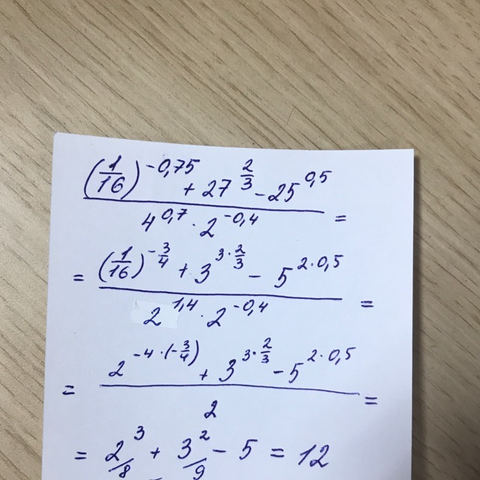 ((1/16)^-0,75 + 27^(2/3) - 25^0,5) / (4^0,7 · 2^-0,4) =
= ((1/16)^(-3/4) + 3^(3·2/3) - 5^(2·0,5)) / (2^1,4 · 2^-0,4) =
= (2^(-4·(-3/4)) + 3^(3·2/3) - 5^(2·0,5)) / 2 =
= 2^3/8 + 3^2/9 - 5 = 12